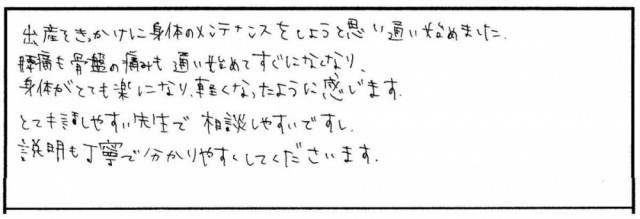 出産をきっかけに身体のメンテナンスをしようと思い通い始めました.
腰痛も骨盤の痛みも通い始めてすぐになくなり、
身体がとても楽になり、軽くなったように感じます.
とても話しやすい先生で相談しやすいですし、
説明も丁寧で分かりやすくしてくださいます.